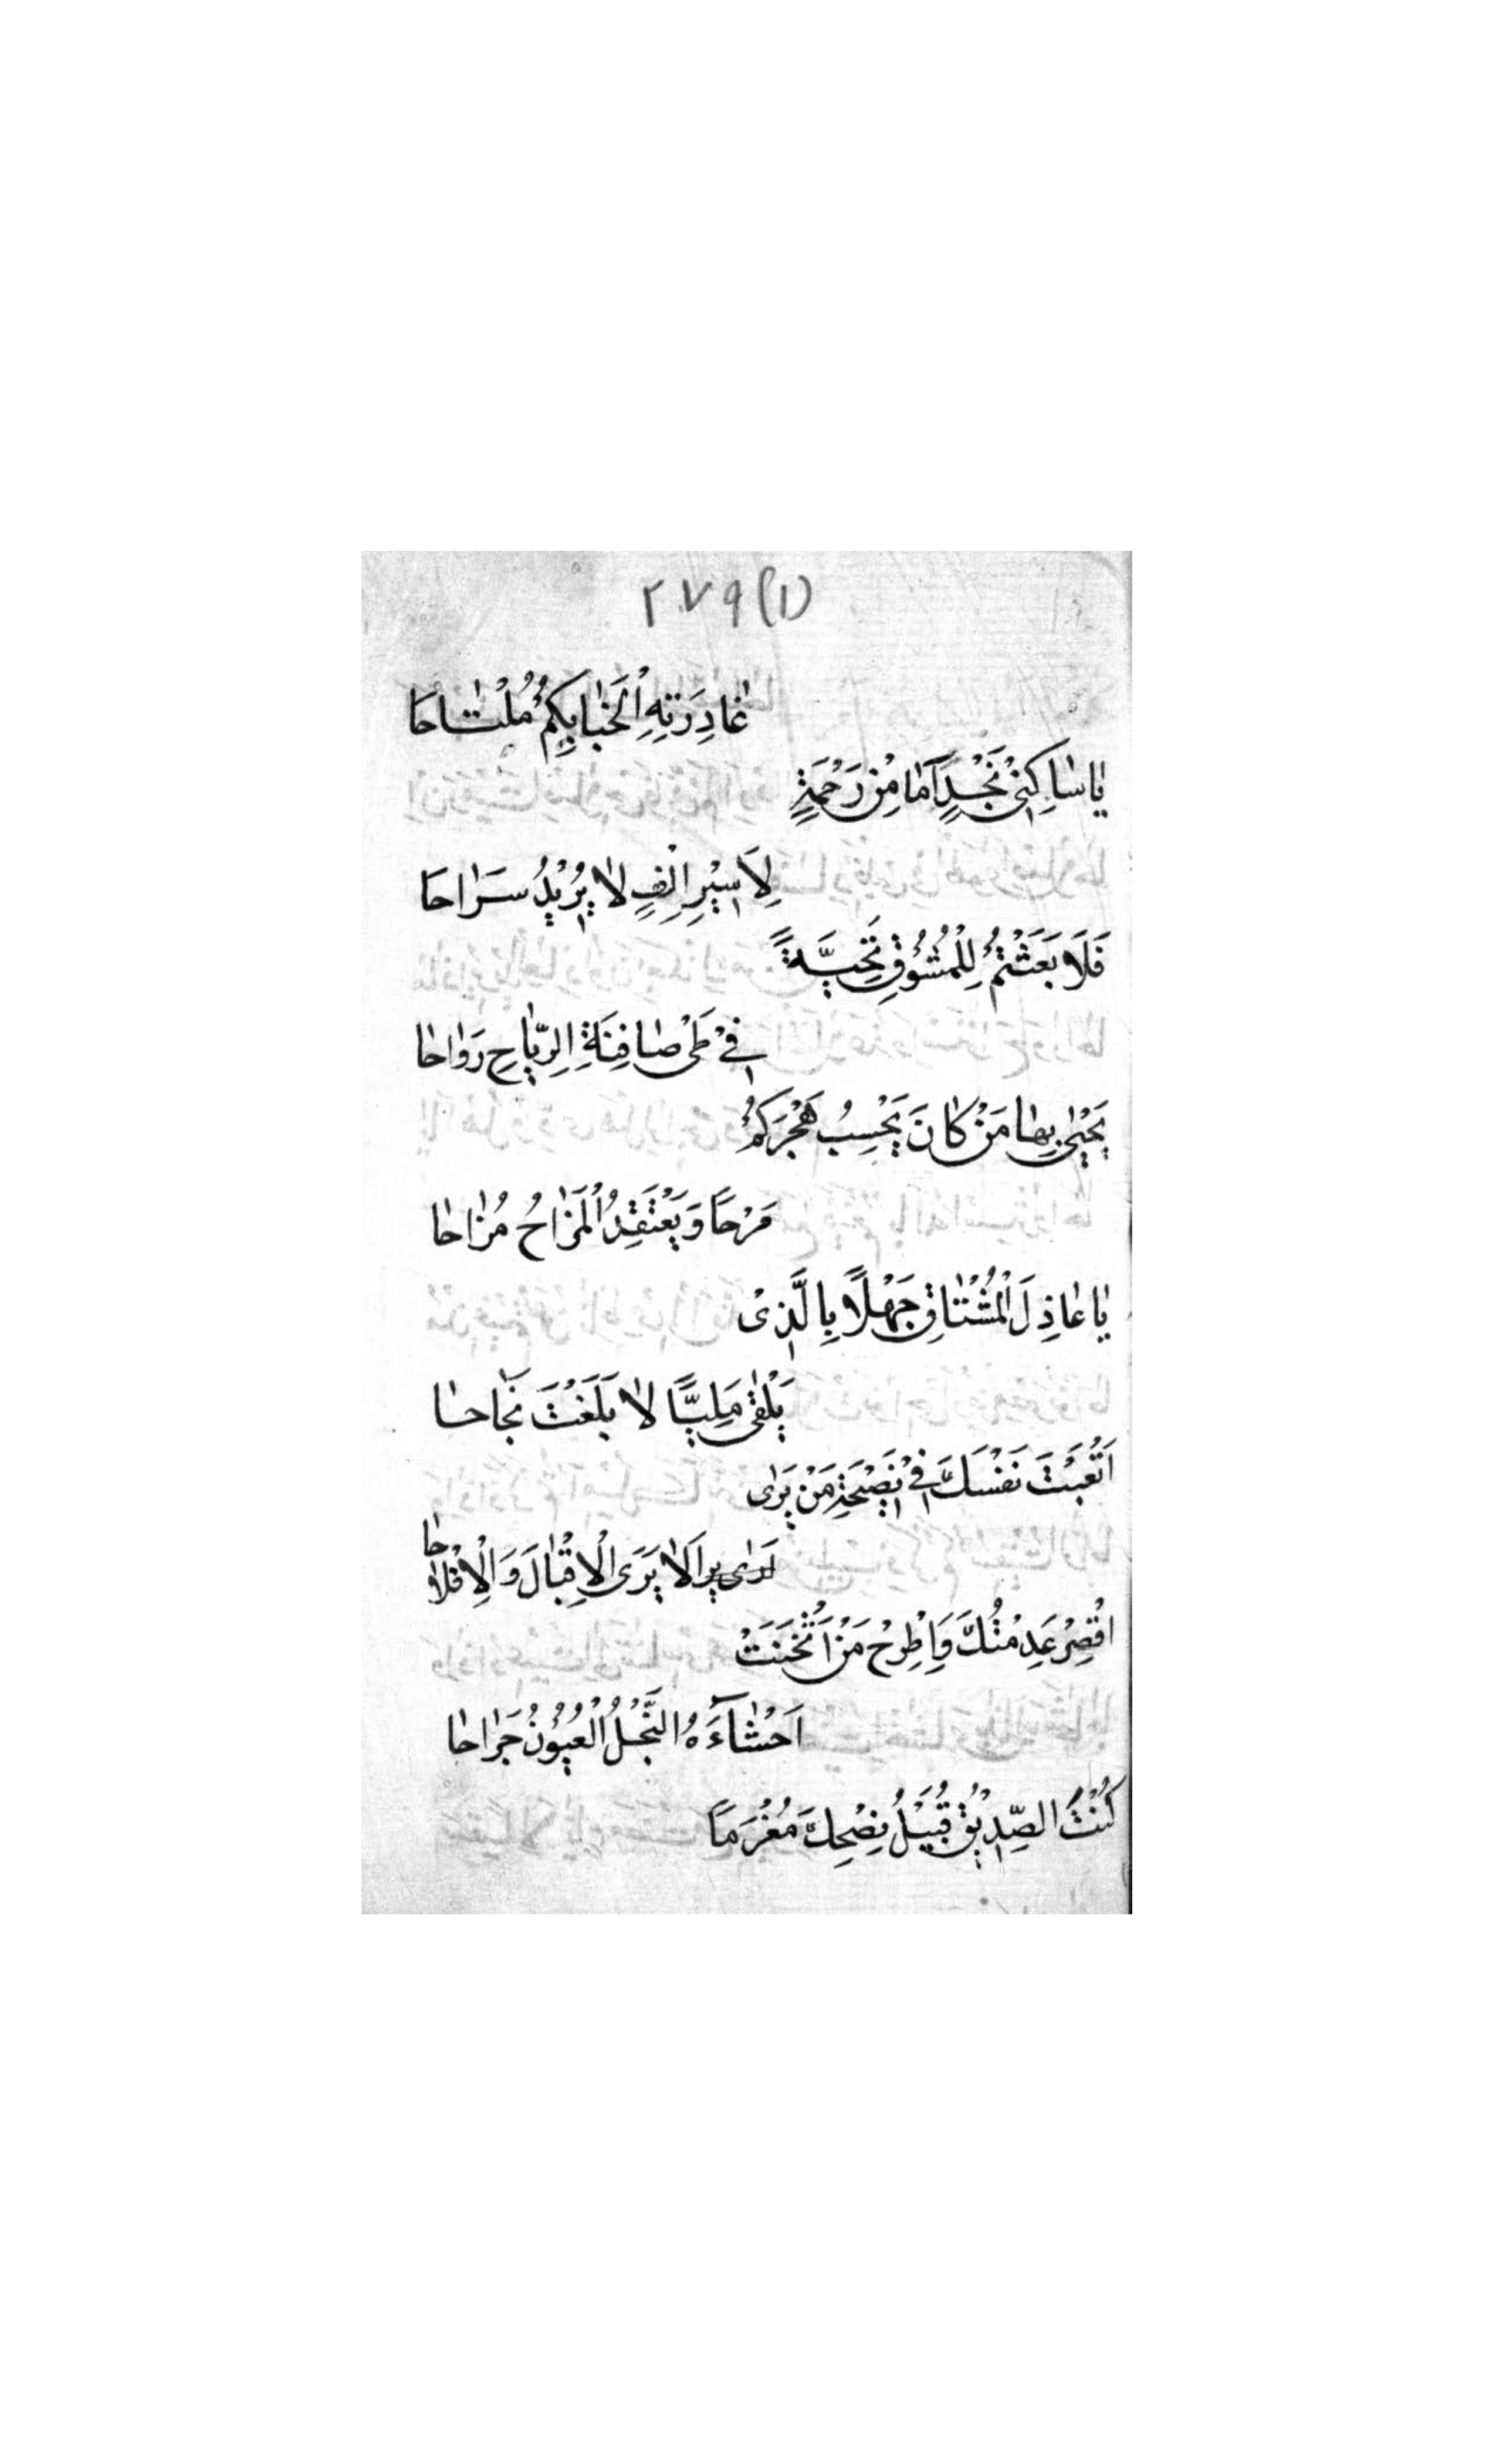 ٢٧٩(١)
غٰادِرَتِهِ الْخَبٰابِكِمُ مُلْتٰاحًا
يٰاسٰاكِنِيْ نَجْدٍ اَمٰا مِنْ رَحْمَةٍ
لِاَسِيْرِ اِلْفٍ لٰا يُرِيْدُ سَرٰاحًا
فَلَا بَعَثْتُمُ لِلْمَشُوْقِ تَحِيَّةً
فِيْ طَيْ صٰافِنَةِ الرِّيٰاحِ رَوٰاحٰا
يَحْيٰى بِهٰا مَنْ كٰانَ يَحْسِبُ هَجْرَكُمُ
مَرْحًا وَيَعْتَقِدُ الْمَزٰاحُ مُزٰاحٰا
يٰا عٰاذِلَ الْمُشْتٰاقِ جَهْلًا بِالَّذِىْ
يَلْقٰى مَلِيًّا لٰا بَلَغْتَ نَجٰاحٰا
اَتْعَبْتَ نَفْسَكَ فِيْ نَصِيْحَةِ مَنْ يَرٰى
اَلٰا يَرَى الْاِقْبٰالَ وَالْاِفْلٰاحٰا
اقْصِرْ عَدِمْتُكَ وَاِطْرِحْ مَنْ اَثْخَنَتْ
اَحْشٰآءَهُ النَّجْلُ الْعُيُوْنُ جَرٰاحٰا
كُنْتُ الصِّدِيْقَ قُبَيْلُ نِصْحِكَ مُغْرَمًا